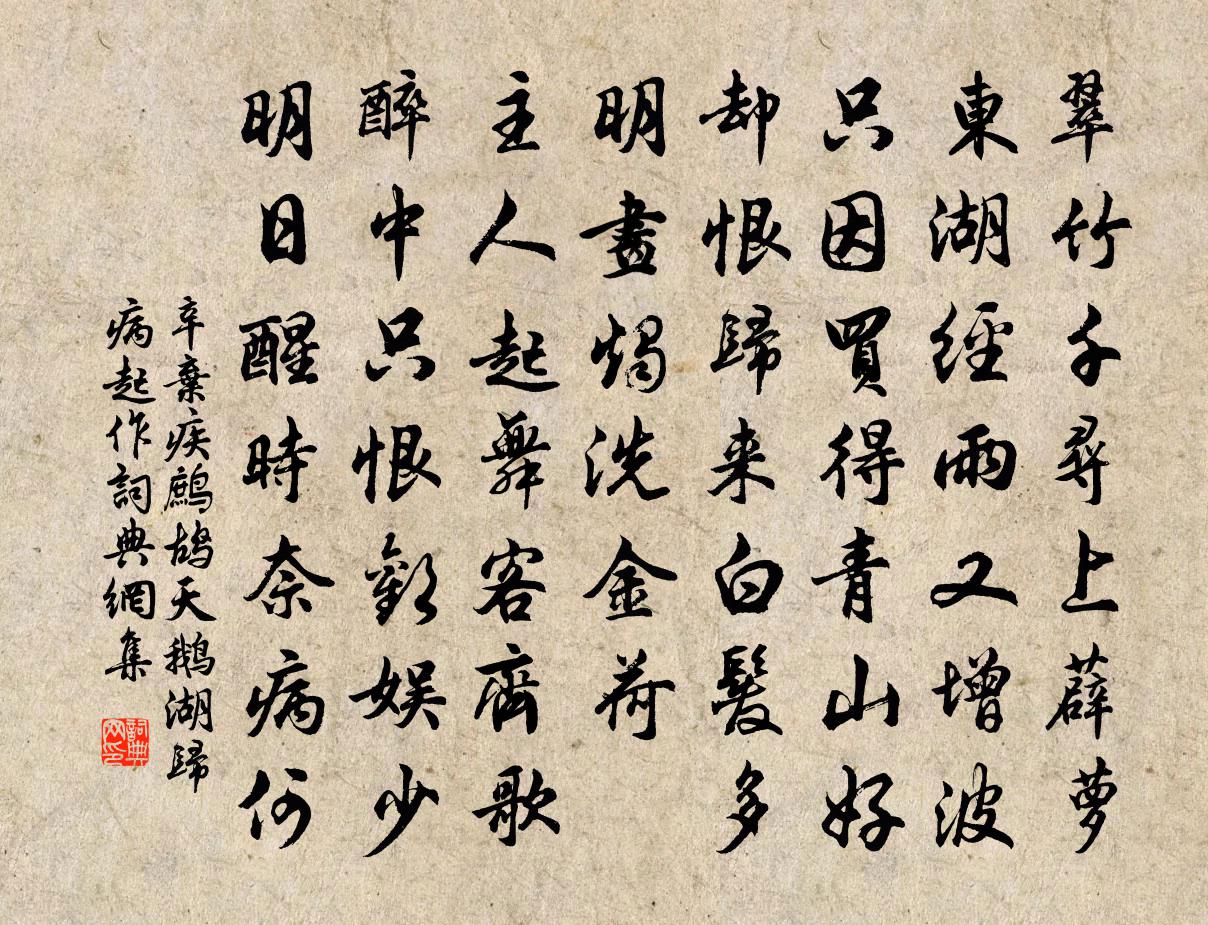 翠竹千尋上薜蘿
東湖經雨又增波
只因買得青山好
却恨歸来白髮多
明畫燭洗金荷
主人起舞客齊歌
醉中只恨歡娱少
明日醒時奈病何
辛棄疾鷓鴣天鵝湖歸
病起作詞典網集
詞典
网印